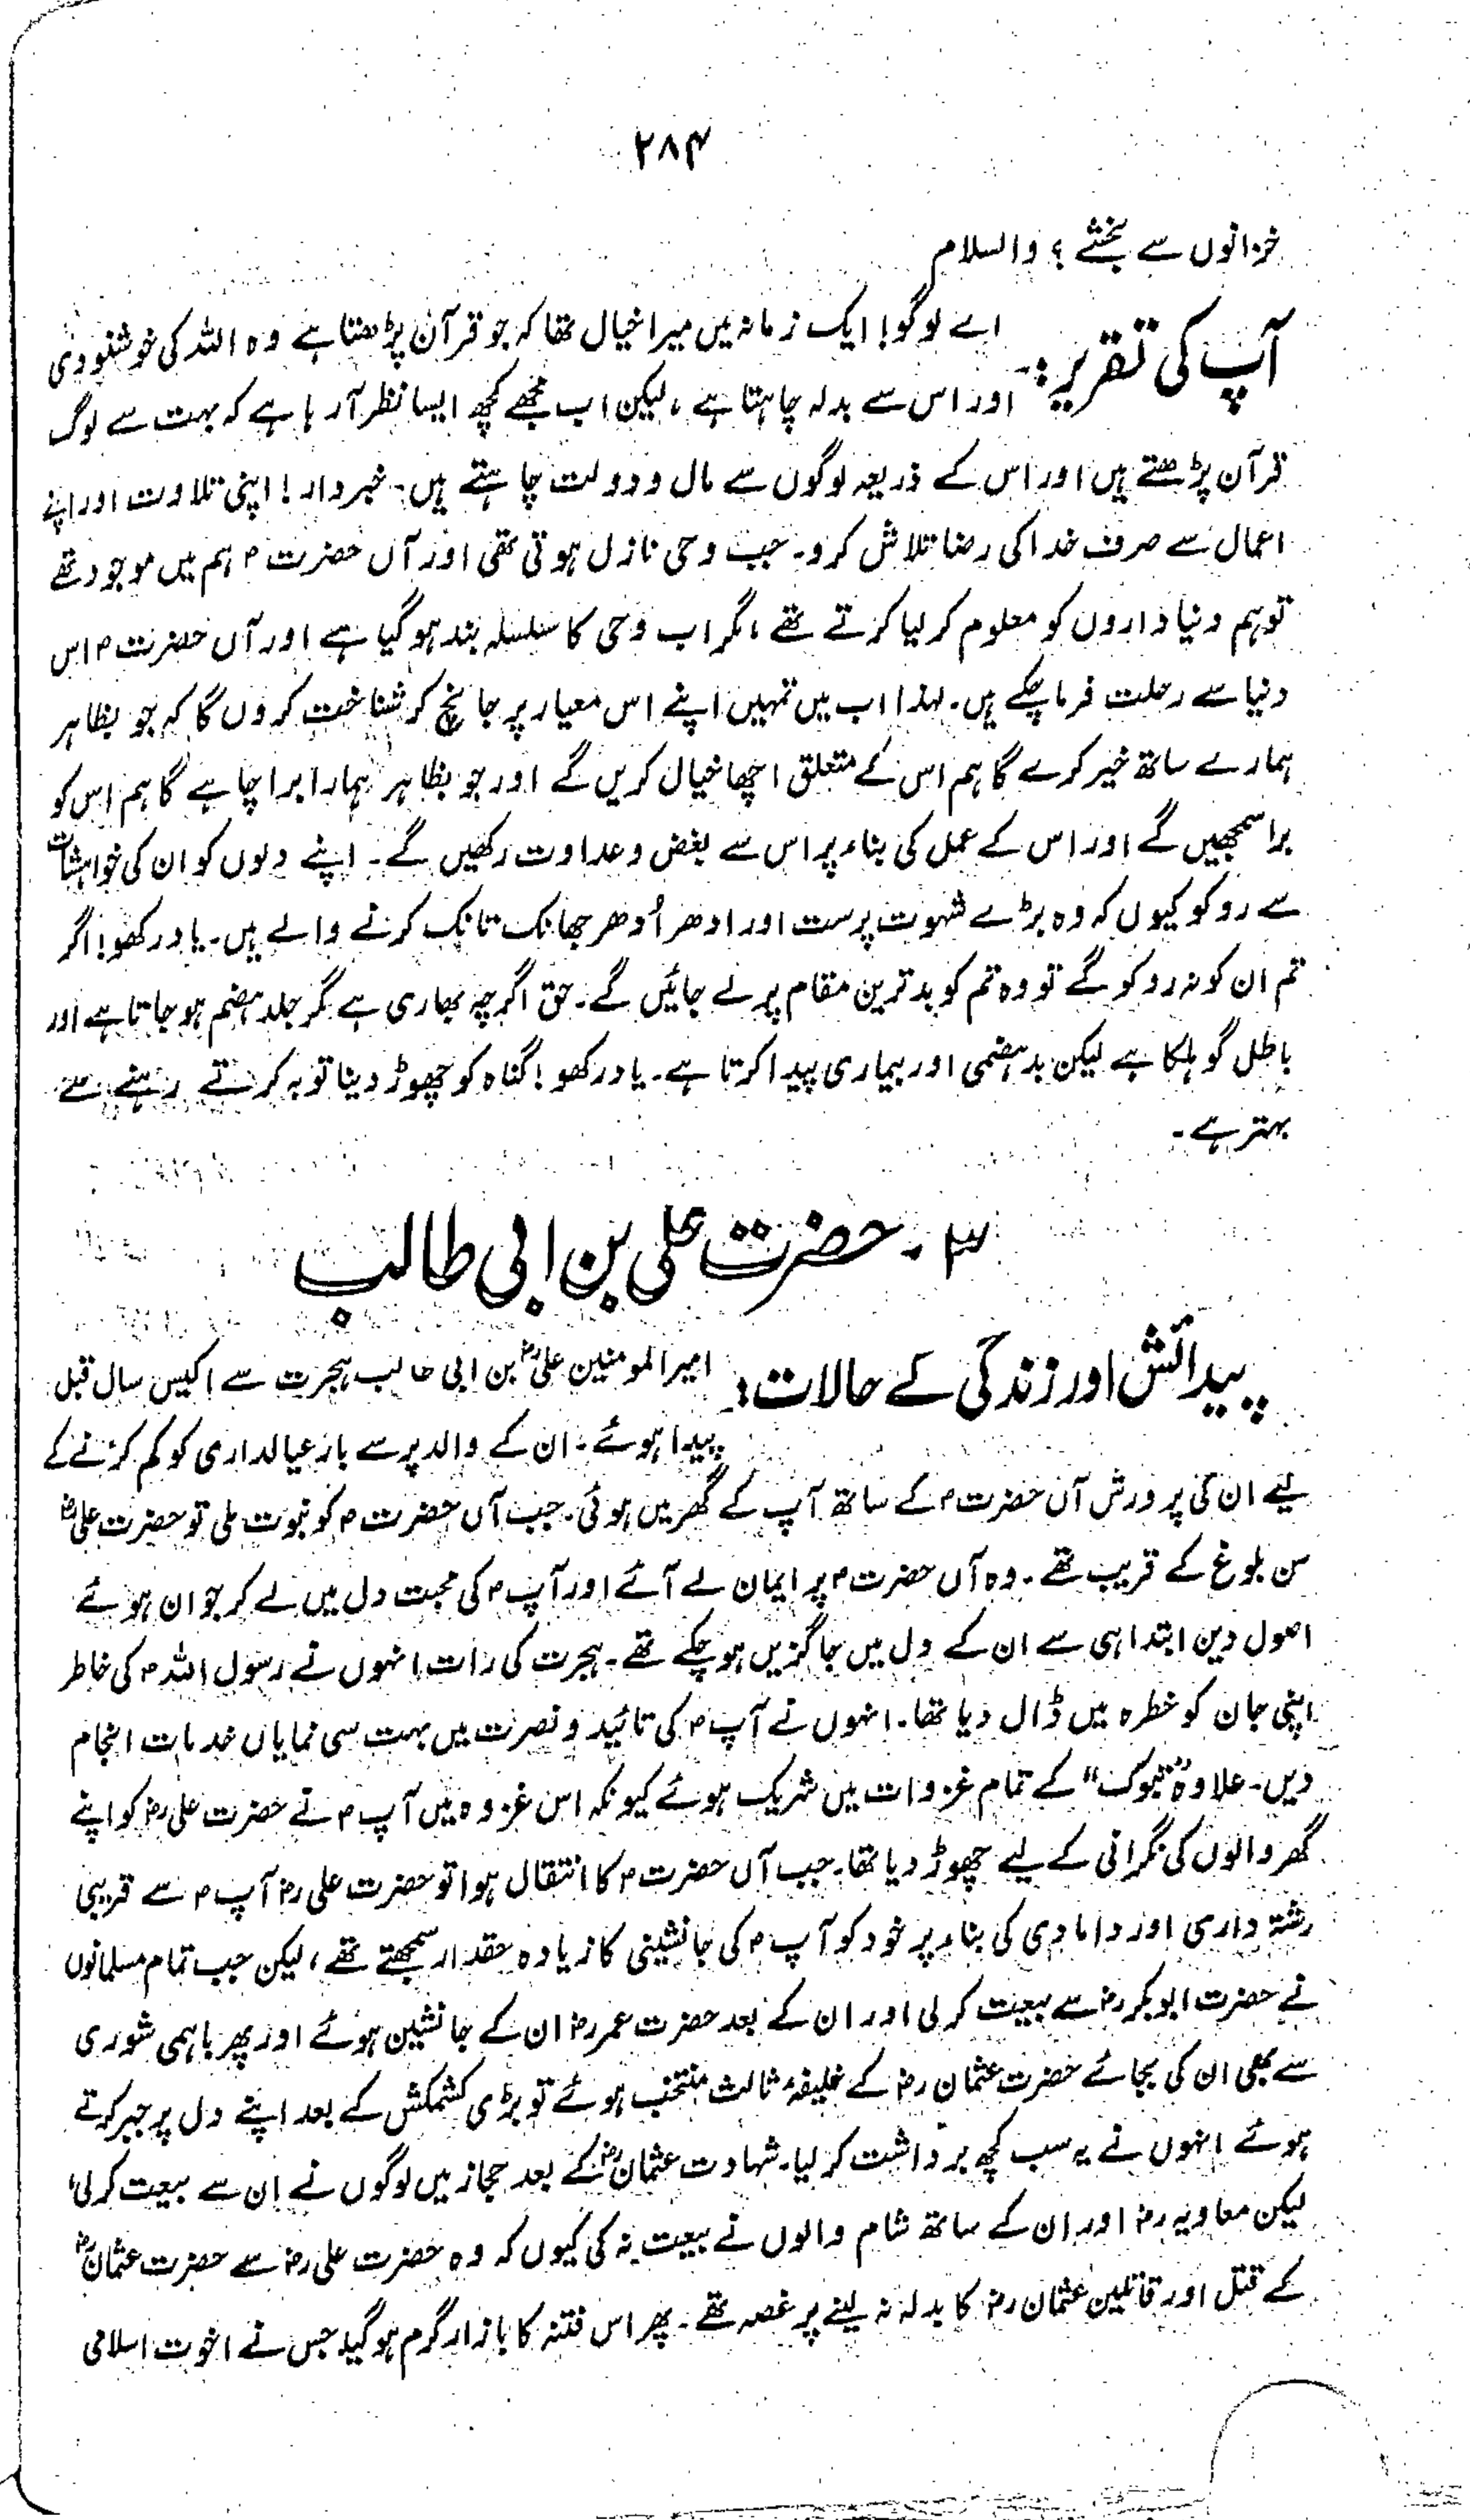 ۲۸۴
خزانوں سے بخشے ؟ والسلام
آپ کی تقریر:- اے لوگو! ایک زمانہ میں میرا خیال تھا کہ جو قرآن پڑھتا ہے وہ اللہ کی خوشنودی
اور اس سے بدلہ چاہتا ہے، لیکن اب مجھے کچھ ایسا نظر آرہا ہے کہ بہت سے لوگ
قرآن پڑھتے ہیں اور اس کے ذریعہ لوگوں سے مال و دولت چاہتے ہیں۔ خبردار! اپنی تلاوت اور اپنے
اعمال سے صرف خدا کی رضا تلاش کرو۔ جب وحی نازل ہوتی تھی اور آں حضرت ؐ ہم میں موجود تھے
تو ہم دنیا داروں کو معلوم کر لیا کرتے تھے، مگر اب وحی کا سلسلہ بند ہو گیا ہے اور آں حضرت ؐ اس
دنیا سے رحلت فرما چکے ہیں۔ لہٰذا اب میں تمہیں اپنے اس معیار پر جانچ کر شناخت کروں گا کہ جو بظاہر
ہمارے ساتھ خیر کرے گا ہم اس کے متعلق اچھا خیال کریں گے اور جو بظاہر ہمارا برا چاہے گا ہم اس کو
برا سمجھیں گے اور اس کے عمل کی بناء پر اس سے بغض و عداوت رکھیں گے۔ اپنے دلوں کو ان کی خواہشات
سے روکو کیوں کہ وہ بڑے شہوت پرست اور ادھر اُدھر جھانک تانک کرنے والے ہیں۔ یاد رکھو! اگر
تم ان کو نہ روکو گے تو وہ تم کو بدترین مقام پر لے جائیں گے۔ حق اگرچہ بھاری ہے مگر جلد ہضم ہو جاتا ہے اور
باطل گو ہلکا ہے لیکن بد ہضمی اور بیماری پیدا کرتا ہے۔ یاد رکھو! گناہ کو چھوڑ دینا توبہ کرتے رہنے سے
بہتر ہے۔
۳۔ حضرت علی بن ابی طالب
پیدائش اور زندگی کے حالات: امیر المومنین علیؓ بن ابی طالب ہجرت سے اکیس سال قبل
پیدا ہوئے۔ ان کے والد پر سے بار عیالداری کو کم کرنے کے
لیے ان کی پرورش آں حضرت ؐ کے ساتھ آپ کے گھر میں ہوئی۔ جب آں حضرت ؐ کو نبوت ملی تو حضرت علیؓ
سن بلوغ کے قریب تھے۔ وہ آں حضرت ؐ پر ایمان لے آئے اور آپ ؐ کی محبت دل میں لے کر جوان ہوئے
اصول دین ابتدا ہی سے ان کے دل میں جاگزیں ہو چکے تھے۔ ہجرت کی رات انہوں نے رسول اللہ ؐ کی خاطر
اپنی جان کو خطرہ میں ڈال دیا تھا۔ انہوں نے آپ ؐ کی تائید و نصرت میں بہت سی نمایاں خدمات انجام
دیں۔ علاوہ "تبوک" کے تمام غزوات میں شریک ہوئے کیونکہ اس غزوہ میں آپ ؐ نے حضرت علی رضؓ کو اپنے
گھر والوں کی نگرانی کے لیے چھوڑ دیا تھا۔ جب آں حضرت ؐ کا انتقال ہوا تو حضرت علی رضؓ آپ ؐ سے قریبی
رشتہ داری اور دامادی کی بناء پر خود کو آپ ؐ کی جانشینی کا زیادہ حقدار سمجھتے تھے، لیکن جب تمام مسلمانوں
نے حضرت ابوبکر رضؓ سے بیعت کر لی اور ان کے بعد حضرت عمر رضؓ ان کے جانشین ہوئے اور پھر باہمی شوری
سے بھی ان کی بجائے حضرت عثمان رضؓ کے خلیفۂ ثالث منتخب ہوئے تو بڑی کشمکش کے بعد اپنے دل پر جبر کرتے
ہوئے انہوں نے یہ سب کچھ برداشت کر لیا۔ شہادت عثمانؓ کے بعد حجاز میں لوگوں نے ان سے بیعت کرلی،
لیکن معاویہ رضؓ اور ان کے ساتھ شام والوں نے بیعت نہ کی کیوں کہ وہ حضرت علی رضؓ سے حضرت عثمانؓ
کے قتل اور قاتلین عثمان رضؓ کا بدلہ نہ لینے پر غصہ تھے۔ پھر اس فتنہ کا بازار گرم ہو گیا جس نے اخوت اسلامی